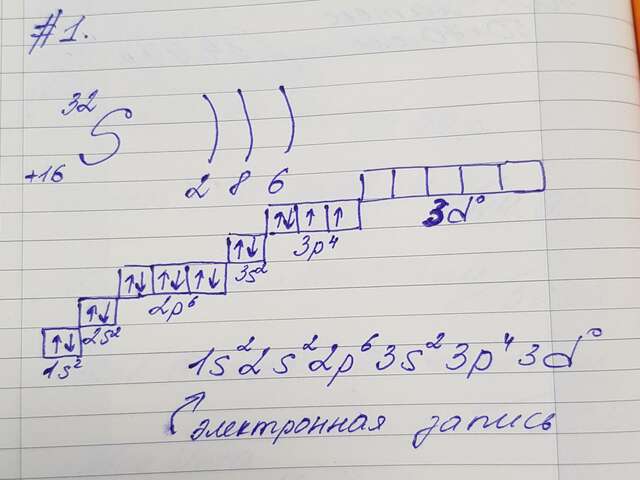 #1.
32
S
+16
2 8 6
3d⁰
↑↓ ↑ ↑
3p⁴
↑↓
3s²
↑↓ ↑↓ ↑↓
2p⁶
↑↓
2s²
↑↓
1s²
1s²2s²2p⁶3s²3p⁴3d⁰
электронная запись